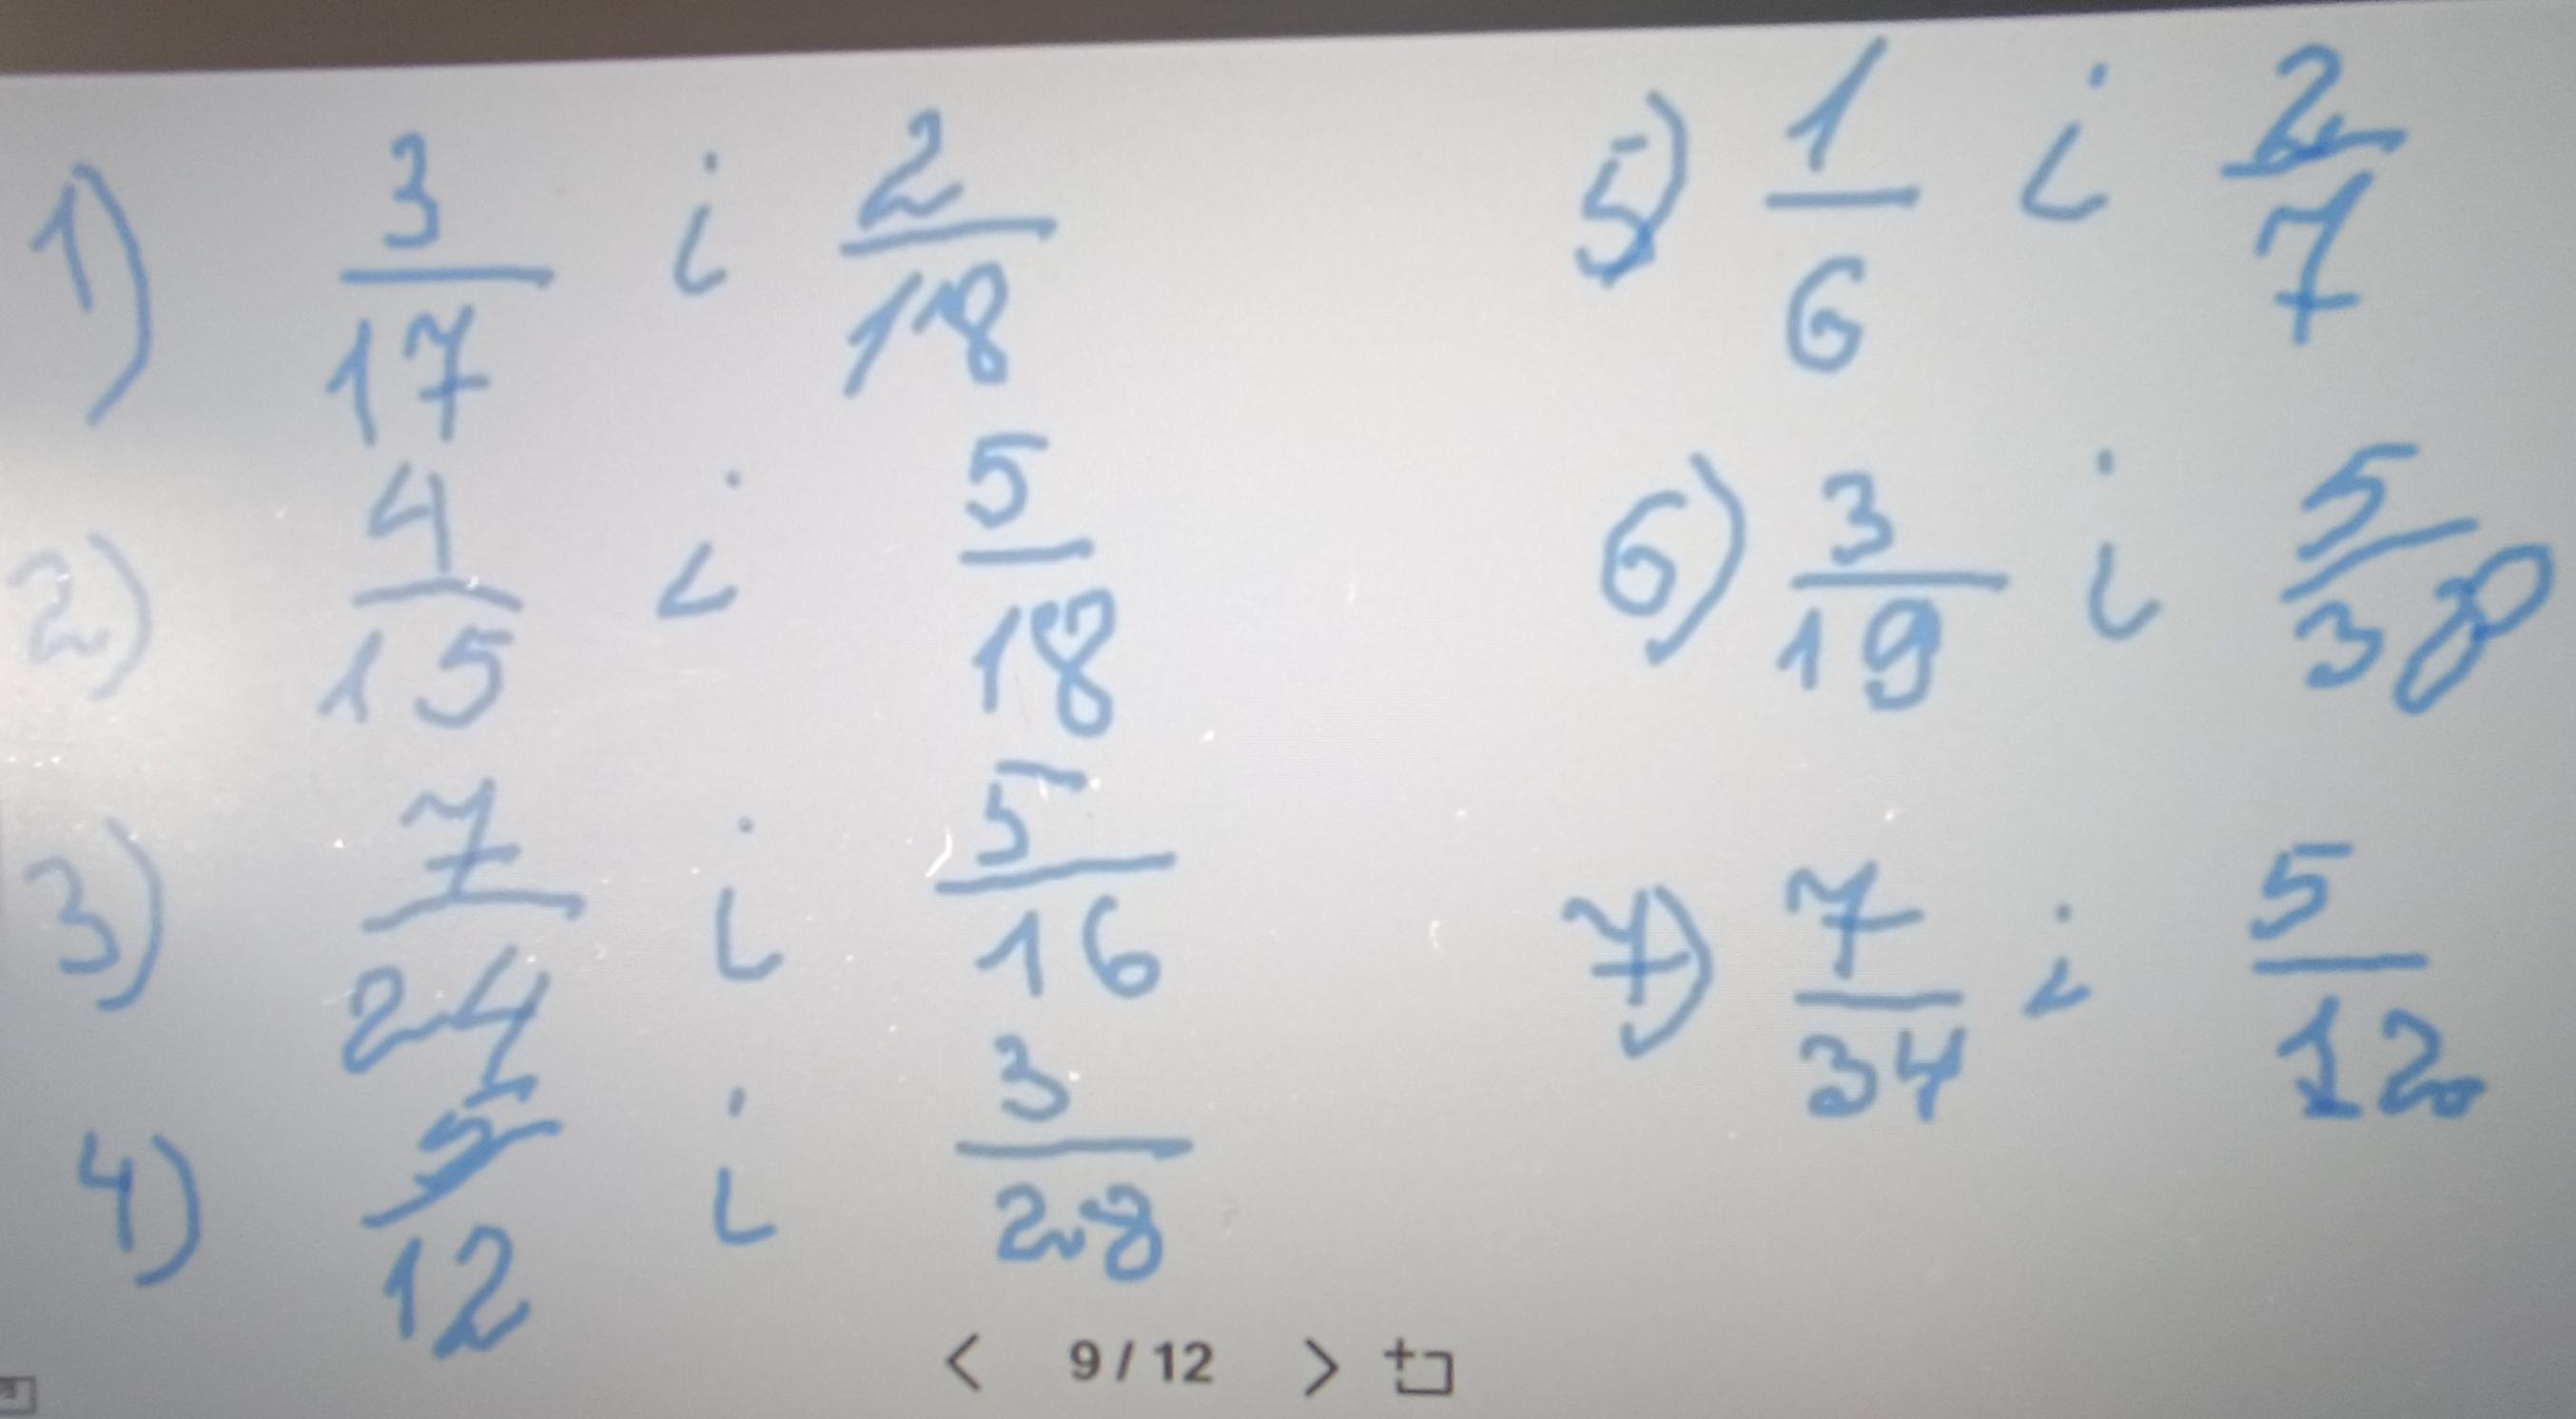 1) 3/17 i 2/18
2) 4/15 i 5/18
3) 7/24 i 5/16
4) 5/12 i 3/28
5) 1/6 i 2/7
6) 3/19 i 5/38
7) 7/34 i 5/12
< 9 / 12 >